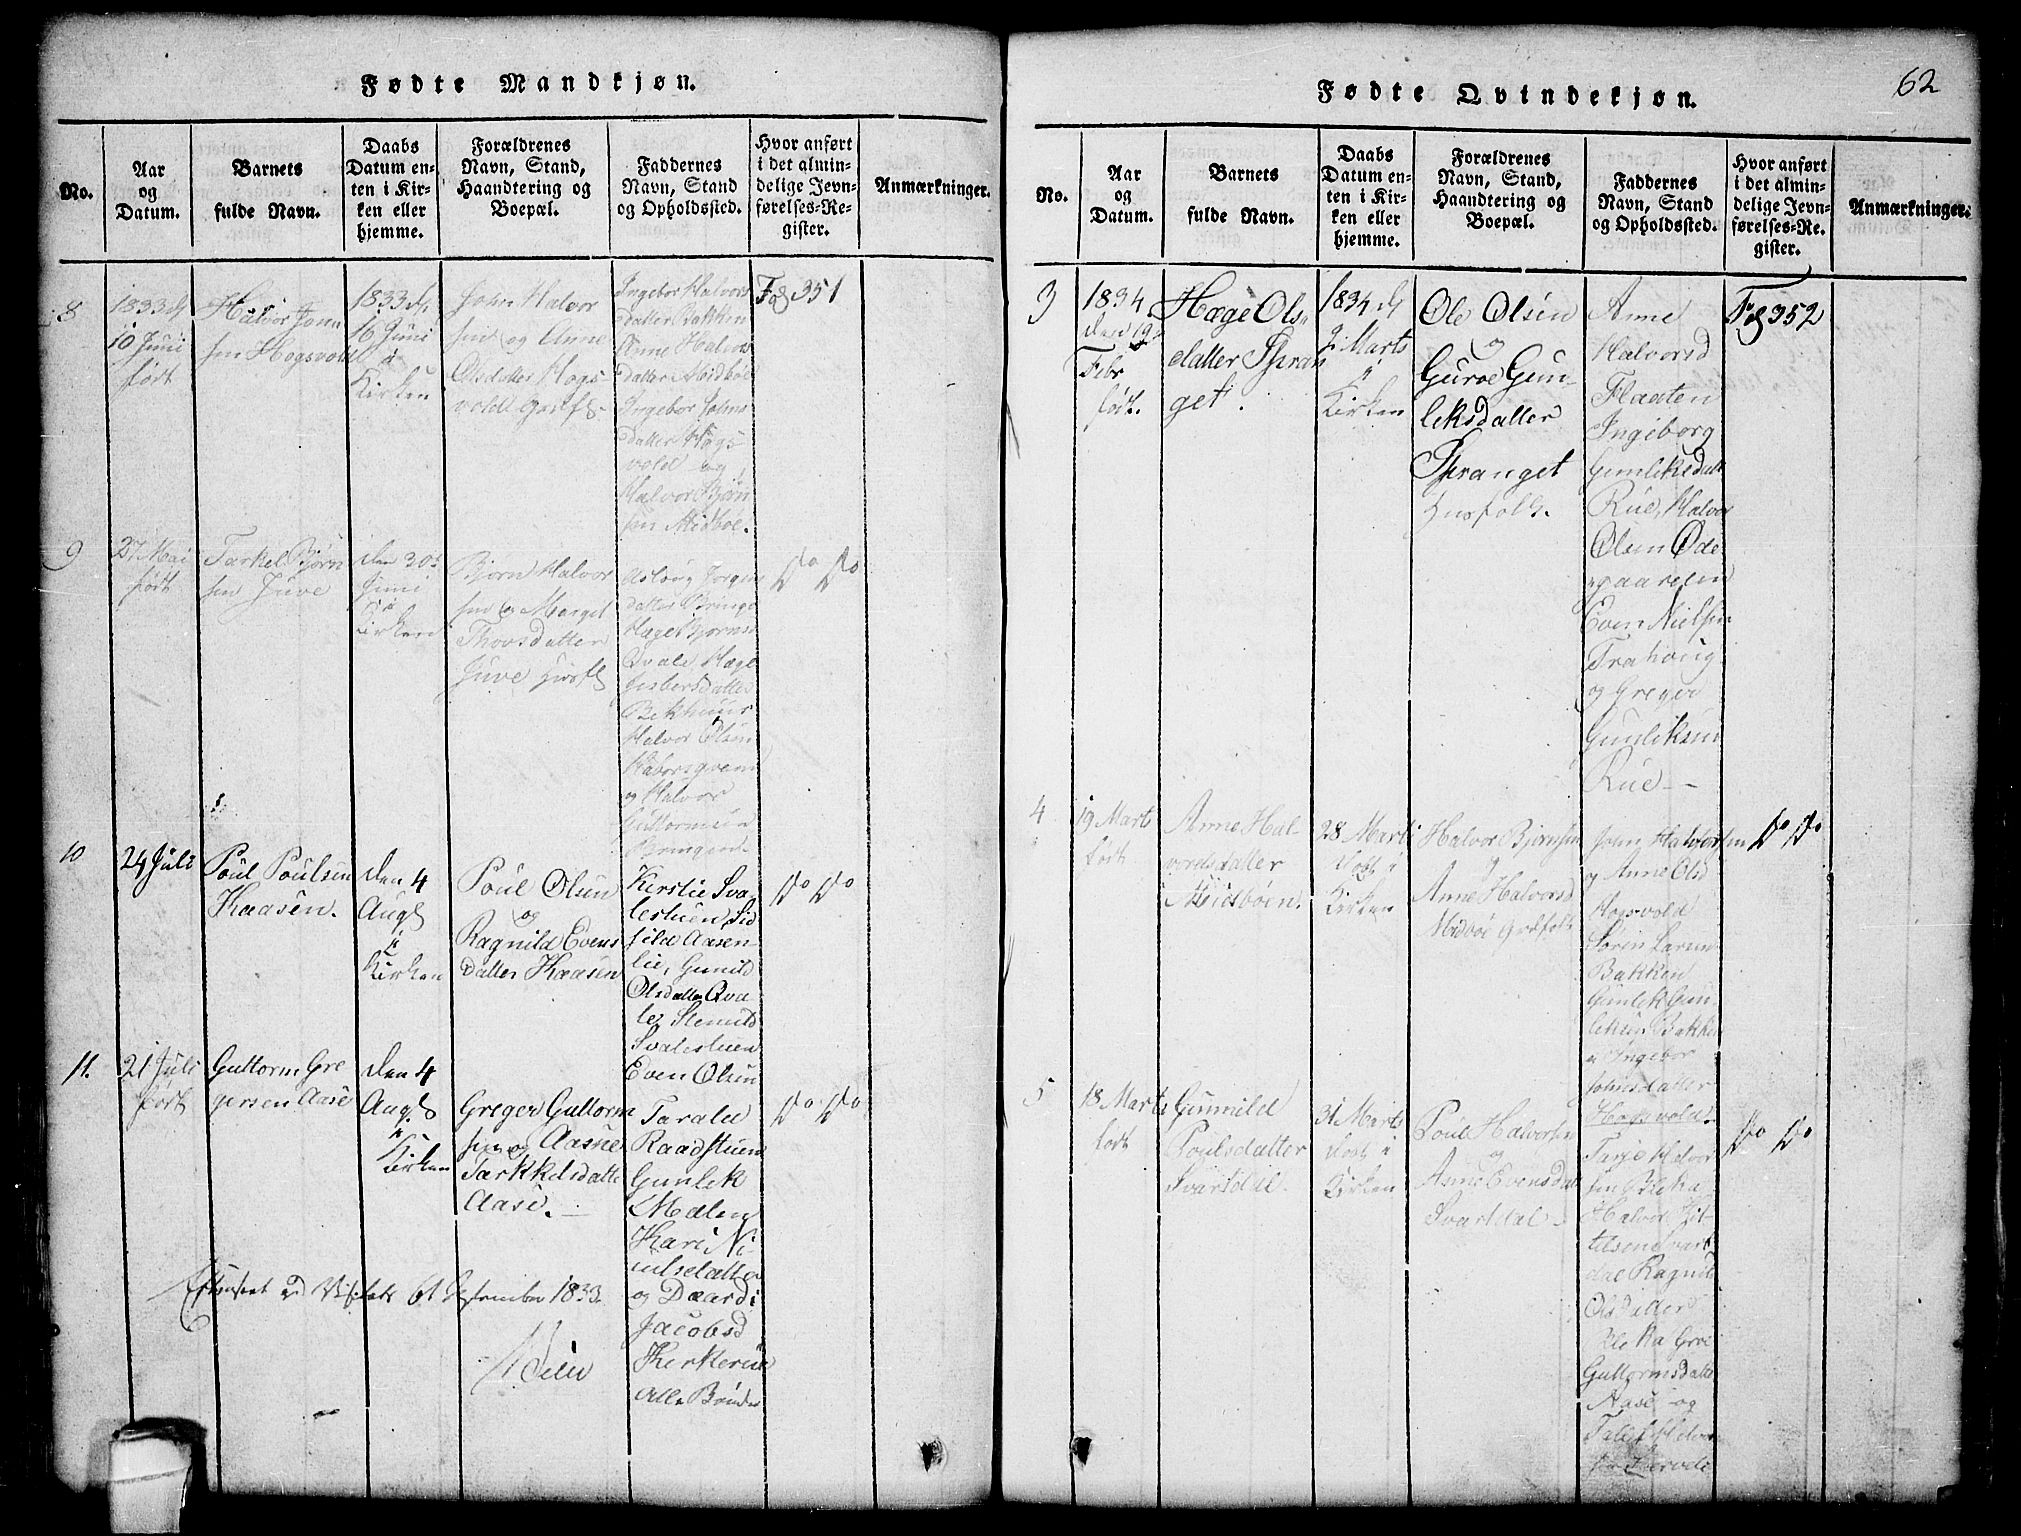 Fødte Mandkjøn.
No.
Aar
og
Datum.
Barnets
fulde Navn.
Daabs
Datum en-
ten i Kir-
ken eller
hjemme.
Forældrenes
Navn, Stand,
Haandtering og
Boepæl.
Faddernes
Navn, Stand
og Opholdssted.
Hvor anført
i det almin-
delige Jevn-
førelses-Re-
gister.
Anmærkninger.
8
1833 d
10 Juni
født
Halvor John
sen Hogsvold
1833 d
16 Juni
i
Kirken
John Halvor
sen og Anne
Olsdatter Hogs
vold
Ingebor Halvors
datter Bakken
Anne Halvors
datter Midboe
Ingebor Johns
datter Hogs
vold og
Halvor Bjørn
sen Midboe.
Fol 351
9
27 Mai
født
Tarkel Bjørn
sen Juve
den 30
Juni
i
Kirken
Bjørn Halvor
sen og Margit
Thovsdatter
Juve
Aslaug Jørgens
datter Bringe
Hæge Bjørns
Qvale Hæge
datter
Bekhuus
Halvor Olsen
og Halvor
Guttormsen
do do
10
24 Juli
Poul Poulsen
Kaasen.
den 4
Aug
i
Kirken
Poul Olsen
og
Ragnild Evens
datter Kaasen
Kirstie Sva
lestuen, Sid
sild Aasen
lie, Gunild
Olsdatter Qva
le, Slemild
Svalestuen
Even Olsen
do do
11.
21 Juli
født
Guttorm Gre
gersen Aase
den 4
Aug
i
Kirken
Greger Guttorm
sen og Aasne
Tarkkelsdatte
Aase.
Tarald
Raadstuen
Gunlek
Moeln
Kari Ni
ulsdatter
og Daardi
Jacobsd
Kirkerue
Alle Bønder
do do
Efterseet ved Visitats September 1833.
Fødte Qvindekjøn.
62
No.
Aar
og
Datum.
Barnets
fulde Navn.
Daabs
Datum en-
ten i Kir-
ken eller
hjemme.
Forældrenes
Navn, Stand,
Haandtering og
Boepæl.
Faddernes
Navn, Stand
og Opholdssted.
Hvor anført
i det almin-
delige Jevn-
førelses-Re-
gister.
Anmærkninger.
3
1834
den 19
Febr
født.
Hæge Ols
datter Thran
get.
1834 d
2 Marts
i
Kirken
Ole Olsen
og
Guroe Gun
leksdatter
Thranget
Husfolk.
Anne
Halvorsd
Flaaten
Ingeborg
Gunleksdatt
Rue, Halvor
Olsen Øde
gaarden
Even Nielsen
Trahoug
og Greger
Gunleksen
Rue
Fol 352
4
19 Mart
født
Anne Hal
vorsdatter
Midbøen.
28 Marts
døbt i
Kirken
Halvor Bjørnsen
og
Anne Halvorsd
Midbøe Grdfolk
John Halvorsen
og Anne Olsd
Hogsvold
Søren Larsen
Bakken
Gunlek Gun
leksen Bakken
og Ingebor
Johnsdatter
Hogsvold.
do do
5
18 Marts
født
Gunnild
Poulsdatter
Svartdal.
31 Marts
døbt i
Kirken
Poul Halvorsen
og
Anne Evensdat
Svartdal
Tarje Halvor
sen Bleka
Halvor Kit
tilsen Svart
dal Ragnild
Olsdatter
Bleka Groe
Guttormsdatter
Aase og
Talef Halvor
sen
do do